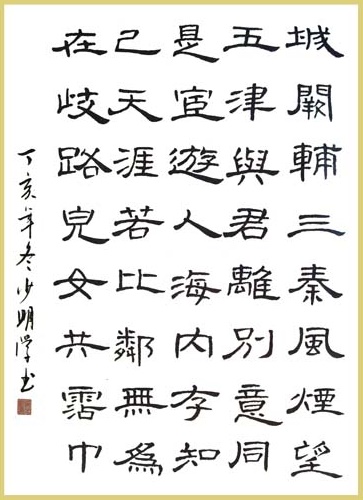 城闕輔三秦風煙望
五津與君離別意同
是宦遊人海内存知
己天涯若比鄰無為
在歧路兒女共霑巾
丁亥年冬少明学书